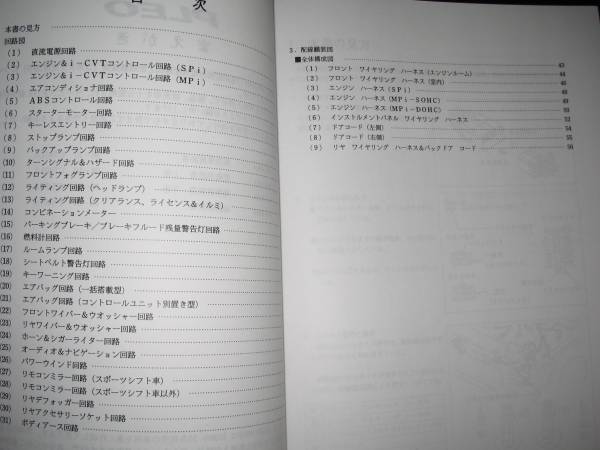 目 次
本書の見方
回路図
(1) 直流電源回路
(2) エンジン＆i－CVTコントロール回路（SPi）
(3) エンジン＆i－CVTコントロール回路（MPi）
(4) エアコンディショナ回路
(5) ABSコントロール回路
(6) スターターモーター回路
(7) キーレスエントリー回路
(8) ストップランプ回路
(9) バックアップランプ回路
(10) ターンシグナル＆ハザード回路
(11) フロントフォグランプ回路
(12) ライティング回路（ヘッドランプ）
(13) ライティング回路（クリアランス、ライセンス＆イルミ）
(14) コンビネーションメーター
(15) パーキングブレーキ／ブレーキフルード残量警告灯回路
(16) 燃料計回路
(17) ルームランプ回路
(18) シートベルト警告灯回路
(19) キーワーニング回路
(20) エアバッグ回路（一括搭載型）
(21) エアバッグ回路（コントロールユニット別置き型）
(22) フロントワイパー＆ウオッシャー回路
(23) リヤワイパー＆ウオッシャー回路
(24) ホーン＆シガーライター回路
(25) オーディオ＆ナビゲーション回路
(26) パワーウインド回路
(27) リモコンミラー回路（スポーツシフト車）
(28) リモコンミラー回路（スポーツシフト車以外）
(29) リヤデフォッガー回路
(30) リヤアクセサリーソケット回路
(31) ボディアース回路
3．配線艤装図
■全体構成図
(1) フロント ワイヤリング ハーネス（エンジンルーム） 43
(2) フロント ワイヤリング ハーネス（室内） 44
(3) エンジン ハーネス（SPi） 48
(4) エンジン ハーネス（MPi－SOHC） 49
(5) エンジン ハーネス（MPi－DOHC） 50
(6) インストルメントパネル ワイヤリング ハーネス 52
(7) ドアコード（左側） 54
(8) ドアコード（右側） 55
(9) リヤ ワイヤリング ハーネス＆バックドア コード 56